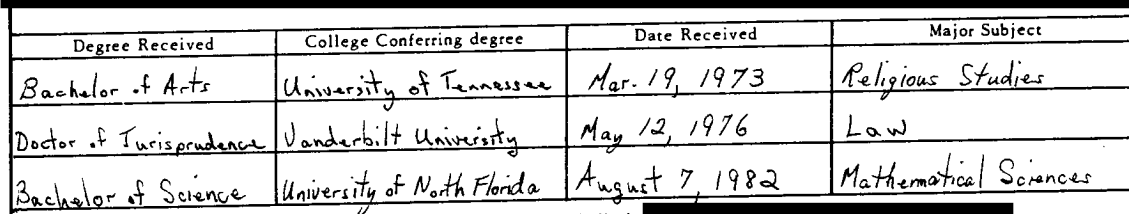 Degree Received College Conferring degree Date Received Major Subject
Bachelor of Arts University of Tennessee Mar. 19, 1973 Religious Studies
Doctor of Jurisprudence Vanderbilt University May 12, 1976 Law
Bachelor of Science University of North Florida August 7, 1982 Mathematical Sciences